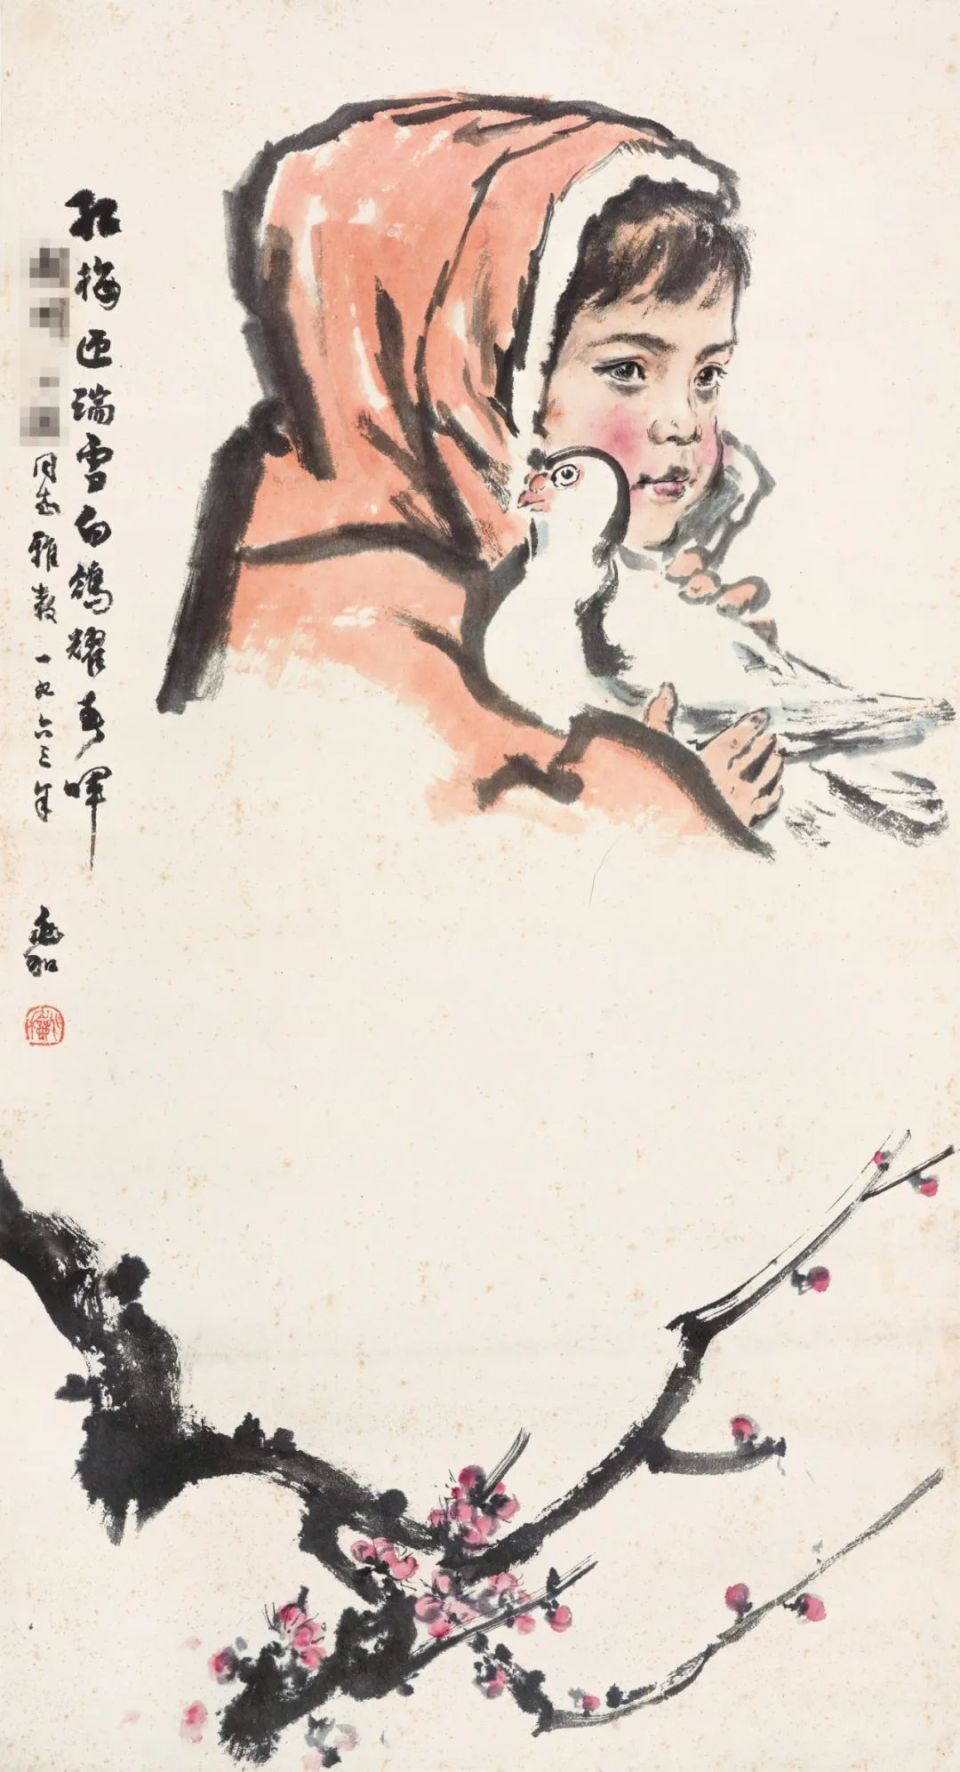 红梅迎瑞雪白鸽耀春暉
同志雅教 一九六三年